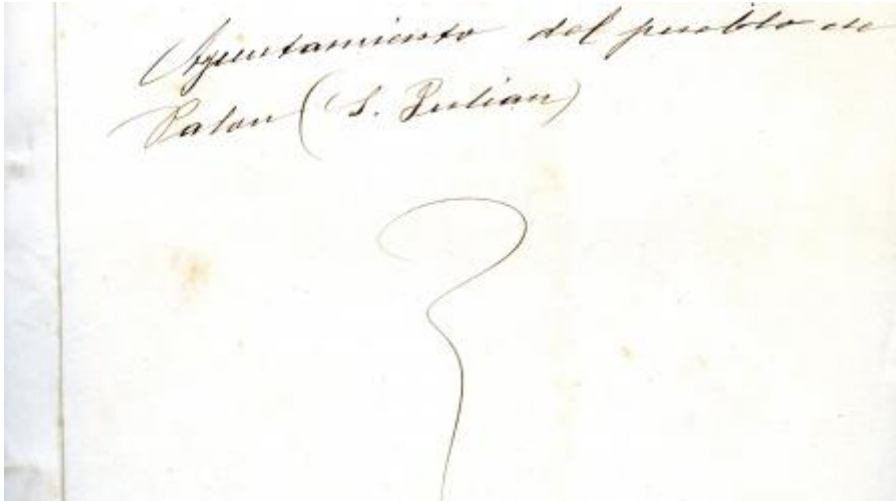 Ayuntamiento del pueblo de
Palou (S. Julian)